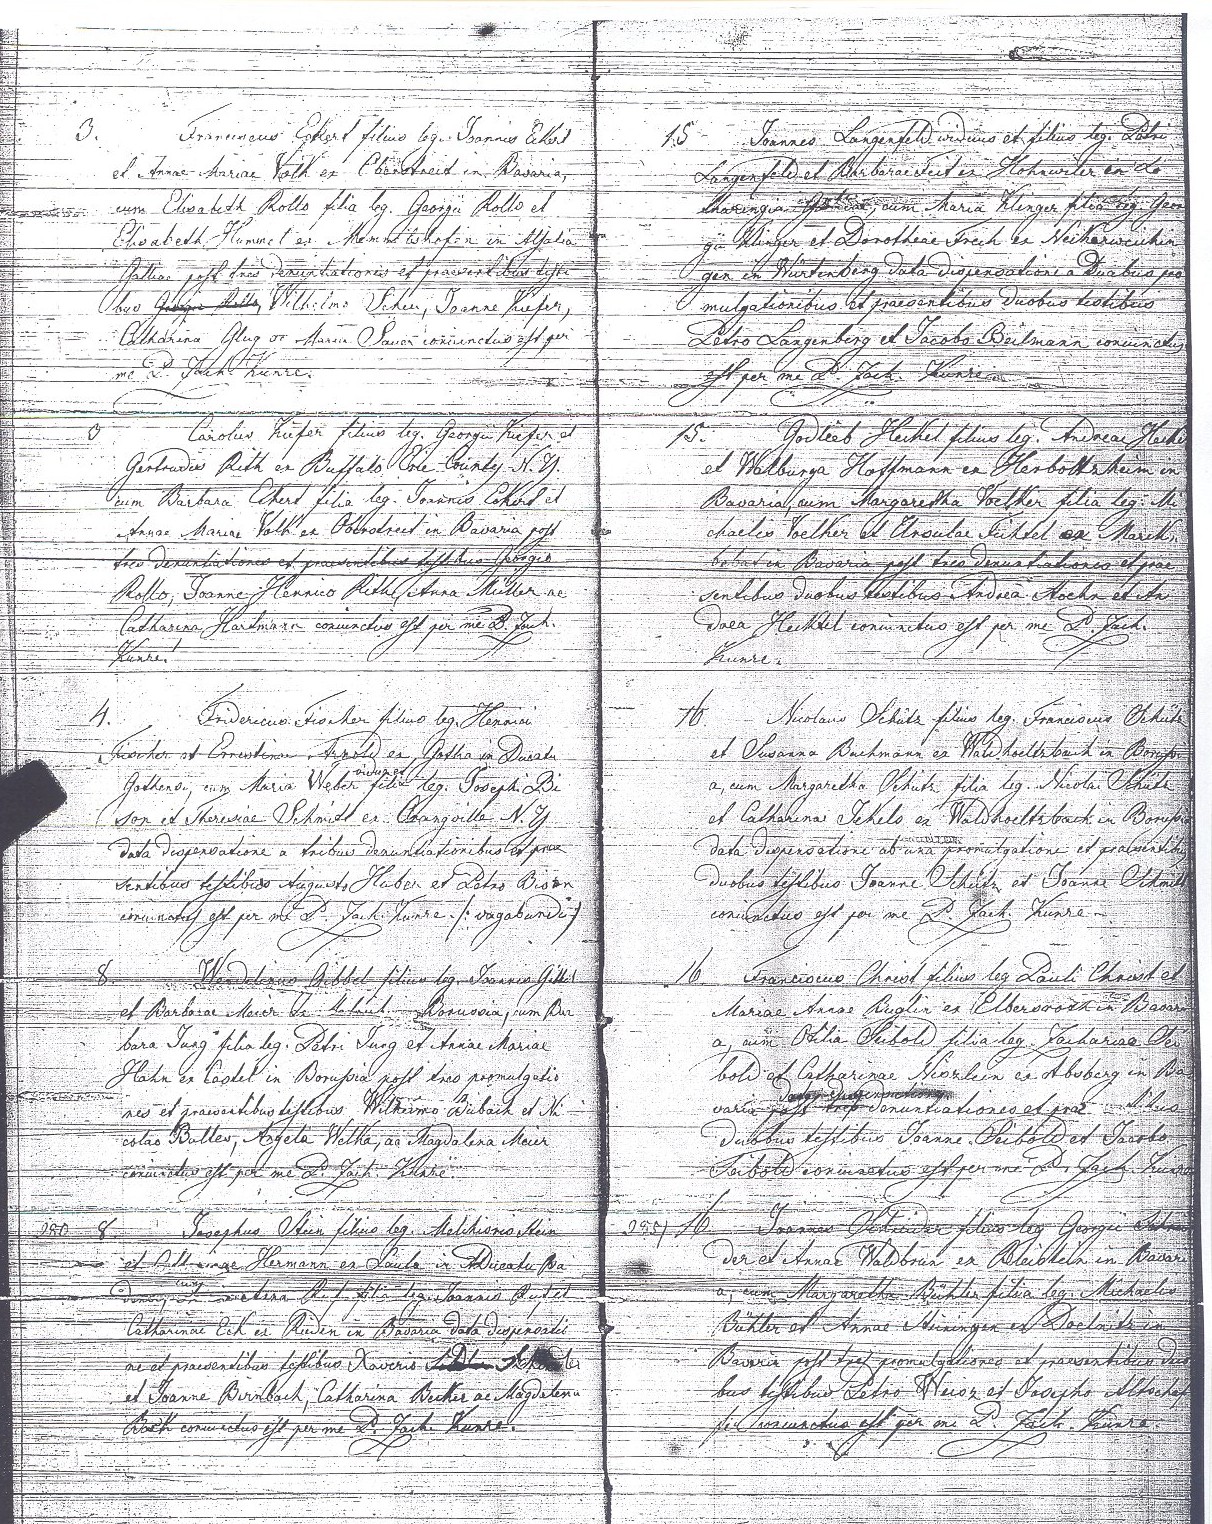 3. Franciscus Eckert filius leg. Joannis Eckert
et Annae Mariae Volk ex Ebenstreit in Bavaria,
cum Elisabeth Rollo filia leg. Georgii Rollo et
Elisabeth Hummel ex Memmtshofen in Alsatia
Galliae post tres denuntiationes et praesentibus testi
bus Wilhelmo Scheu, Joanne Kiefer,
Catharina Glug ac Maria Sauer coniunctus est per
me P. Zach. Kunze.
3 Carolus Kiefer filius leg. Georgii Kiefer et
Gertrudis Rith ex Buffalo Erie County N. Y.
cum Barbara Eckert filia leg. Joannis Eckert et
Annae Mariae Volk ex in Bavaria post
tres denuntiationes et praesentibus testibus Georgio
Rollo, Joanne Henrico Rith, Anna Müller ac
Catharina Hartmann coniunctus est per me P. Zach.
Kunze.
4. Fridericus Fischer filius leg. Henrici
Fischer et Ernestina Arnold ex Gotha in Ducatu
Gothensi, cum Maria Weber vidua et filia leg. Joseph Bi
son et Theresiae Schmidt ex Orangville N. Y.
data dispensatione a tribus denuntiationibus et prae
sentibus testibus Augusto Huber et Petro Bison
coniunctus est per me P. Zach. Kunze. (: vagabundi :)
8. Wendelinus Gibbel filius leg. Joannis Gibbel
et Barbarae Meier Borussia, cum Bar
bara Jung filia leg. Petri Jung et Annae Mariae
Hahn ex Castel in Borussia post tres promulgatio
nes et praesentibus testibus Wilhelmo Bubach et Ni
colao Balles, Angela Welka, ac Magdalena Meier
coniunctus est per me P. Zach. Kunze.
8 Josephus Stein filius leg. Melchioris Stein
et Hermann ex Lauda in Ducatu Ba
filia leg. Joannis et
Catharinae Eck ex Rieden in Bavaria data dispensatio
ne et praesentibus testibus Xaverio
et Joanne Birnbach, Catharina Becker ac Magdalena
Bosh coniunctus est per me P. Zach. Kunze.
15 Joannes Langenfeld viduus et filius leg. Petri
Langenfeld et Barbarae Feit ex Hohnwiler in Lo
tharingia cum Maria Klinger filia leg. Geor
gii Klinger et Dorotheae Frech ex
gen in Würtenberg data dispensatione a duabus pro
mulgationibus et praesentibus duobus testibus
Petro Langenberg et Jacobo Beilmann coniunctus
est per me P. Zach. Kunze.
15. Godlieb Heikel filius leg. Andreae
et Walburga Hoffmann ex Herboltzheim in
Bavaria, cum Margaretha Voelker filia leg. Mi
chaelis Voelker et Ursulae Fichtel ex Markt
bebat in Bavaria post tres denuntiationes et prae
sentibus duobus testibus Andrea Hoehn et An
drea Heikkel coniunctus est per me P. Zach.
Kunze.
16 Nicolaus Schütz filius leg. Franciscus Schütz
et Susanna Buchmann ex Waldhoeltzbach in Borussi
a, cum Margaretha Schütz filia leg. Nicolai Schütz
et Catharinae Ickels ex Waldhoeltzbach in Borussia
data dispensatione ab una promulgatione et praesentibus
duobus testibus Joanne Schütz et Joanne Schmitt
coniunctus est per me P. Zach. Kunze.
16 Franciscus Christ filius leg. Pauli Christ et
Mariae Annae Ruglin ex Elbersroth in Bavari
a, cum Otilia Seibold filia leg. Zachariae Sei
bold et Catharinae Nislein ex Absberg in Ba
varia post denuntiationes et prae
duobus testibus Joanne Seibold et Jacobo
Seibold coniunctus est per me P. Zach. Kunze
16 Joannes filius leg. Georgii
der et Annae Waldbrun ex in Bavari
a, cum Margaretha Bühler filia leg. Michaelis
Bühler et Annae Meiningen ex Doelnitz in
Bavaria post tres promulgationes et praesentibus duo
bus testibus Petro Weisz et Josepho
coniunctus est per me P. Zach. Kunze